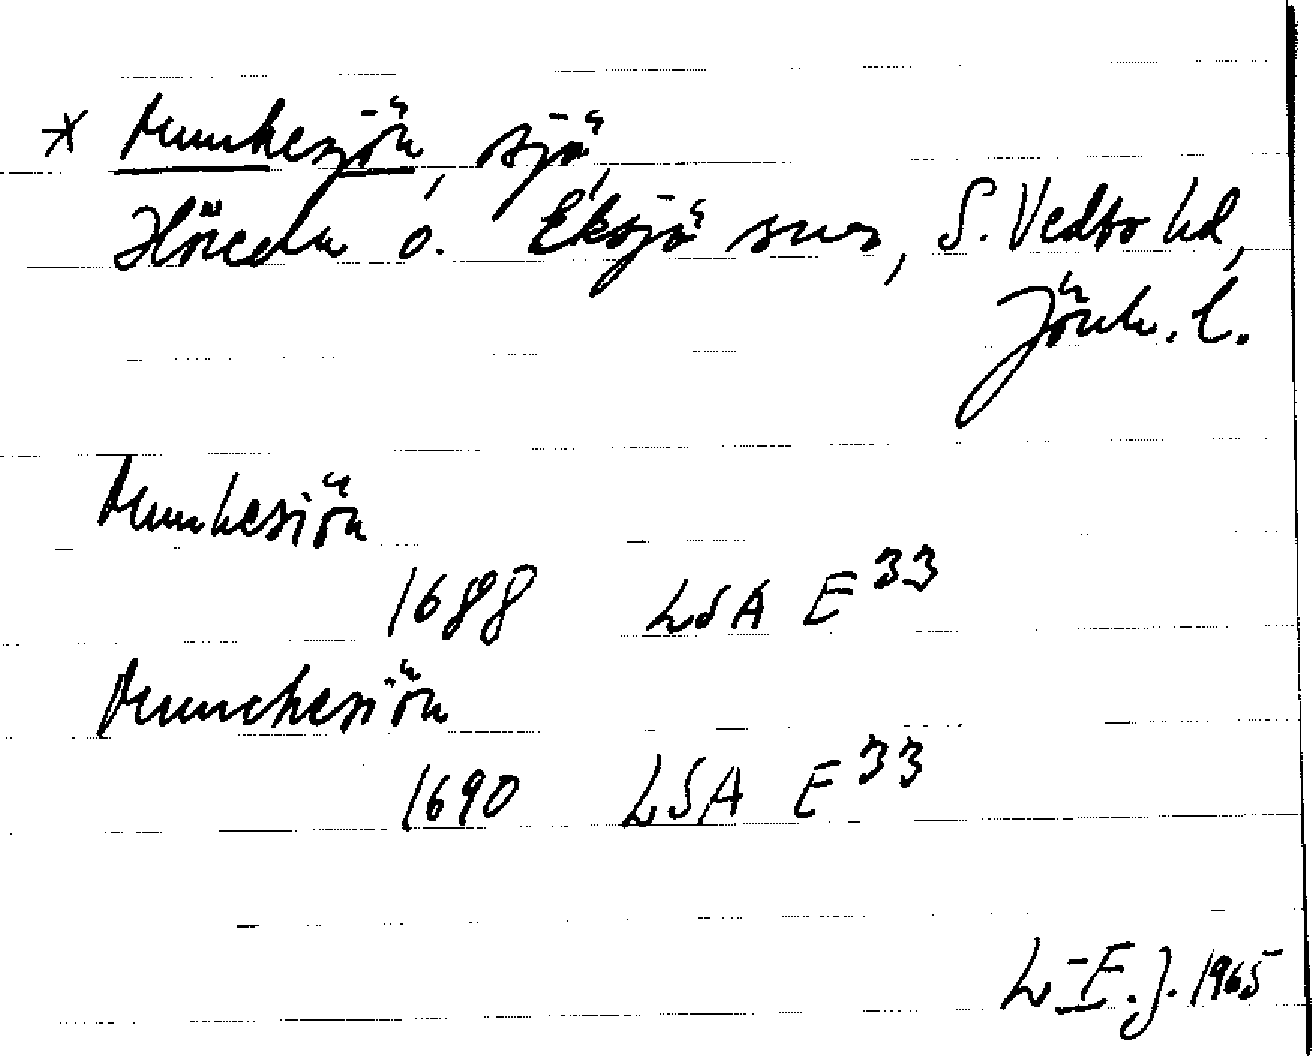 * Munkesjön, sjö,
Höreda o. Eksjö snr, S. Vedbo hd,
Jönk. l.
Munkesiön
1688 LSA E 33
Munchesiön
1690 LSA E 33
L-E. J. 1965